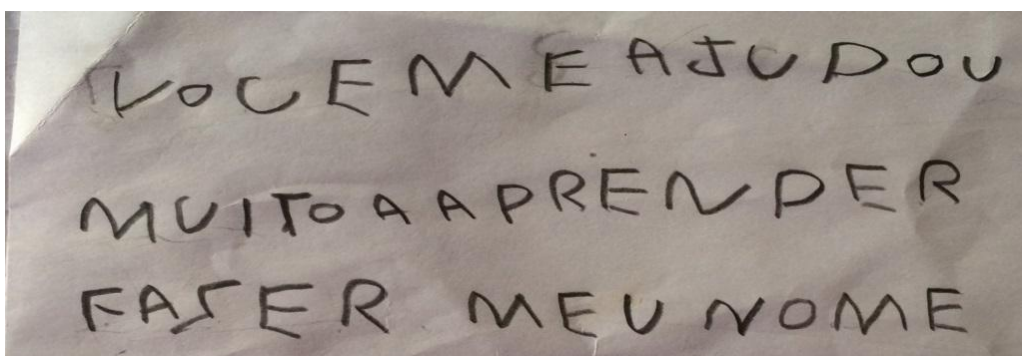 VOCE ME AJUDOU
MUITO A APRENDER
FASER MEU NOME